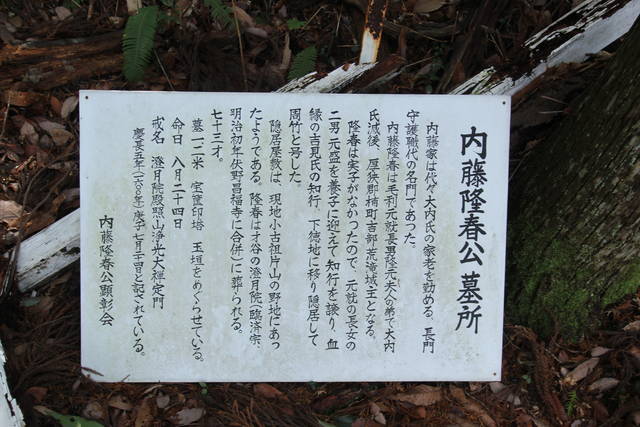 内藤隆春公 墓所
内藤家は代々大内氏の家老を勤める、長門
守護職代の名門であった。
内藤隆春は毛利元就長男隆元夫人の弟で大内
氏滅後、厚狭郡楠町吉部荒滝城主となる。
隆春は実子がなかったので、元就の長女の
二男元盛を養子に迎えて知行を譲り、血
縁の吉見氏の知行、下徳地に移り隠居して
周竹と号した。
隠居屋敷は、現地小古祖片山の野地にあっ
たようである。隆春は才谷の澄月院(臨済宗、
明治初年伏野昌福寺に合併)に葬られる。
七十三才。
墓一・二米 宝篋印塔 玉垣をめぐらせている。
命日 八月二十四日
戒名 澄月院殿照山浄光大禅定門
慶長五年(一六〇〇年)庚子七月二十四日と記されている。
内藤隆春公顕彰会